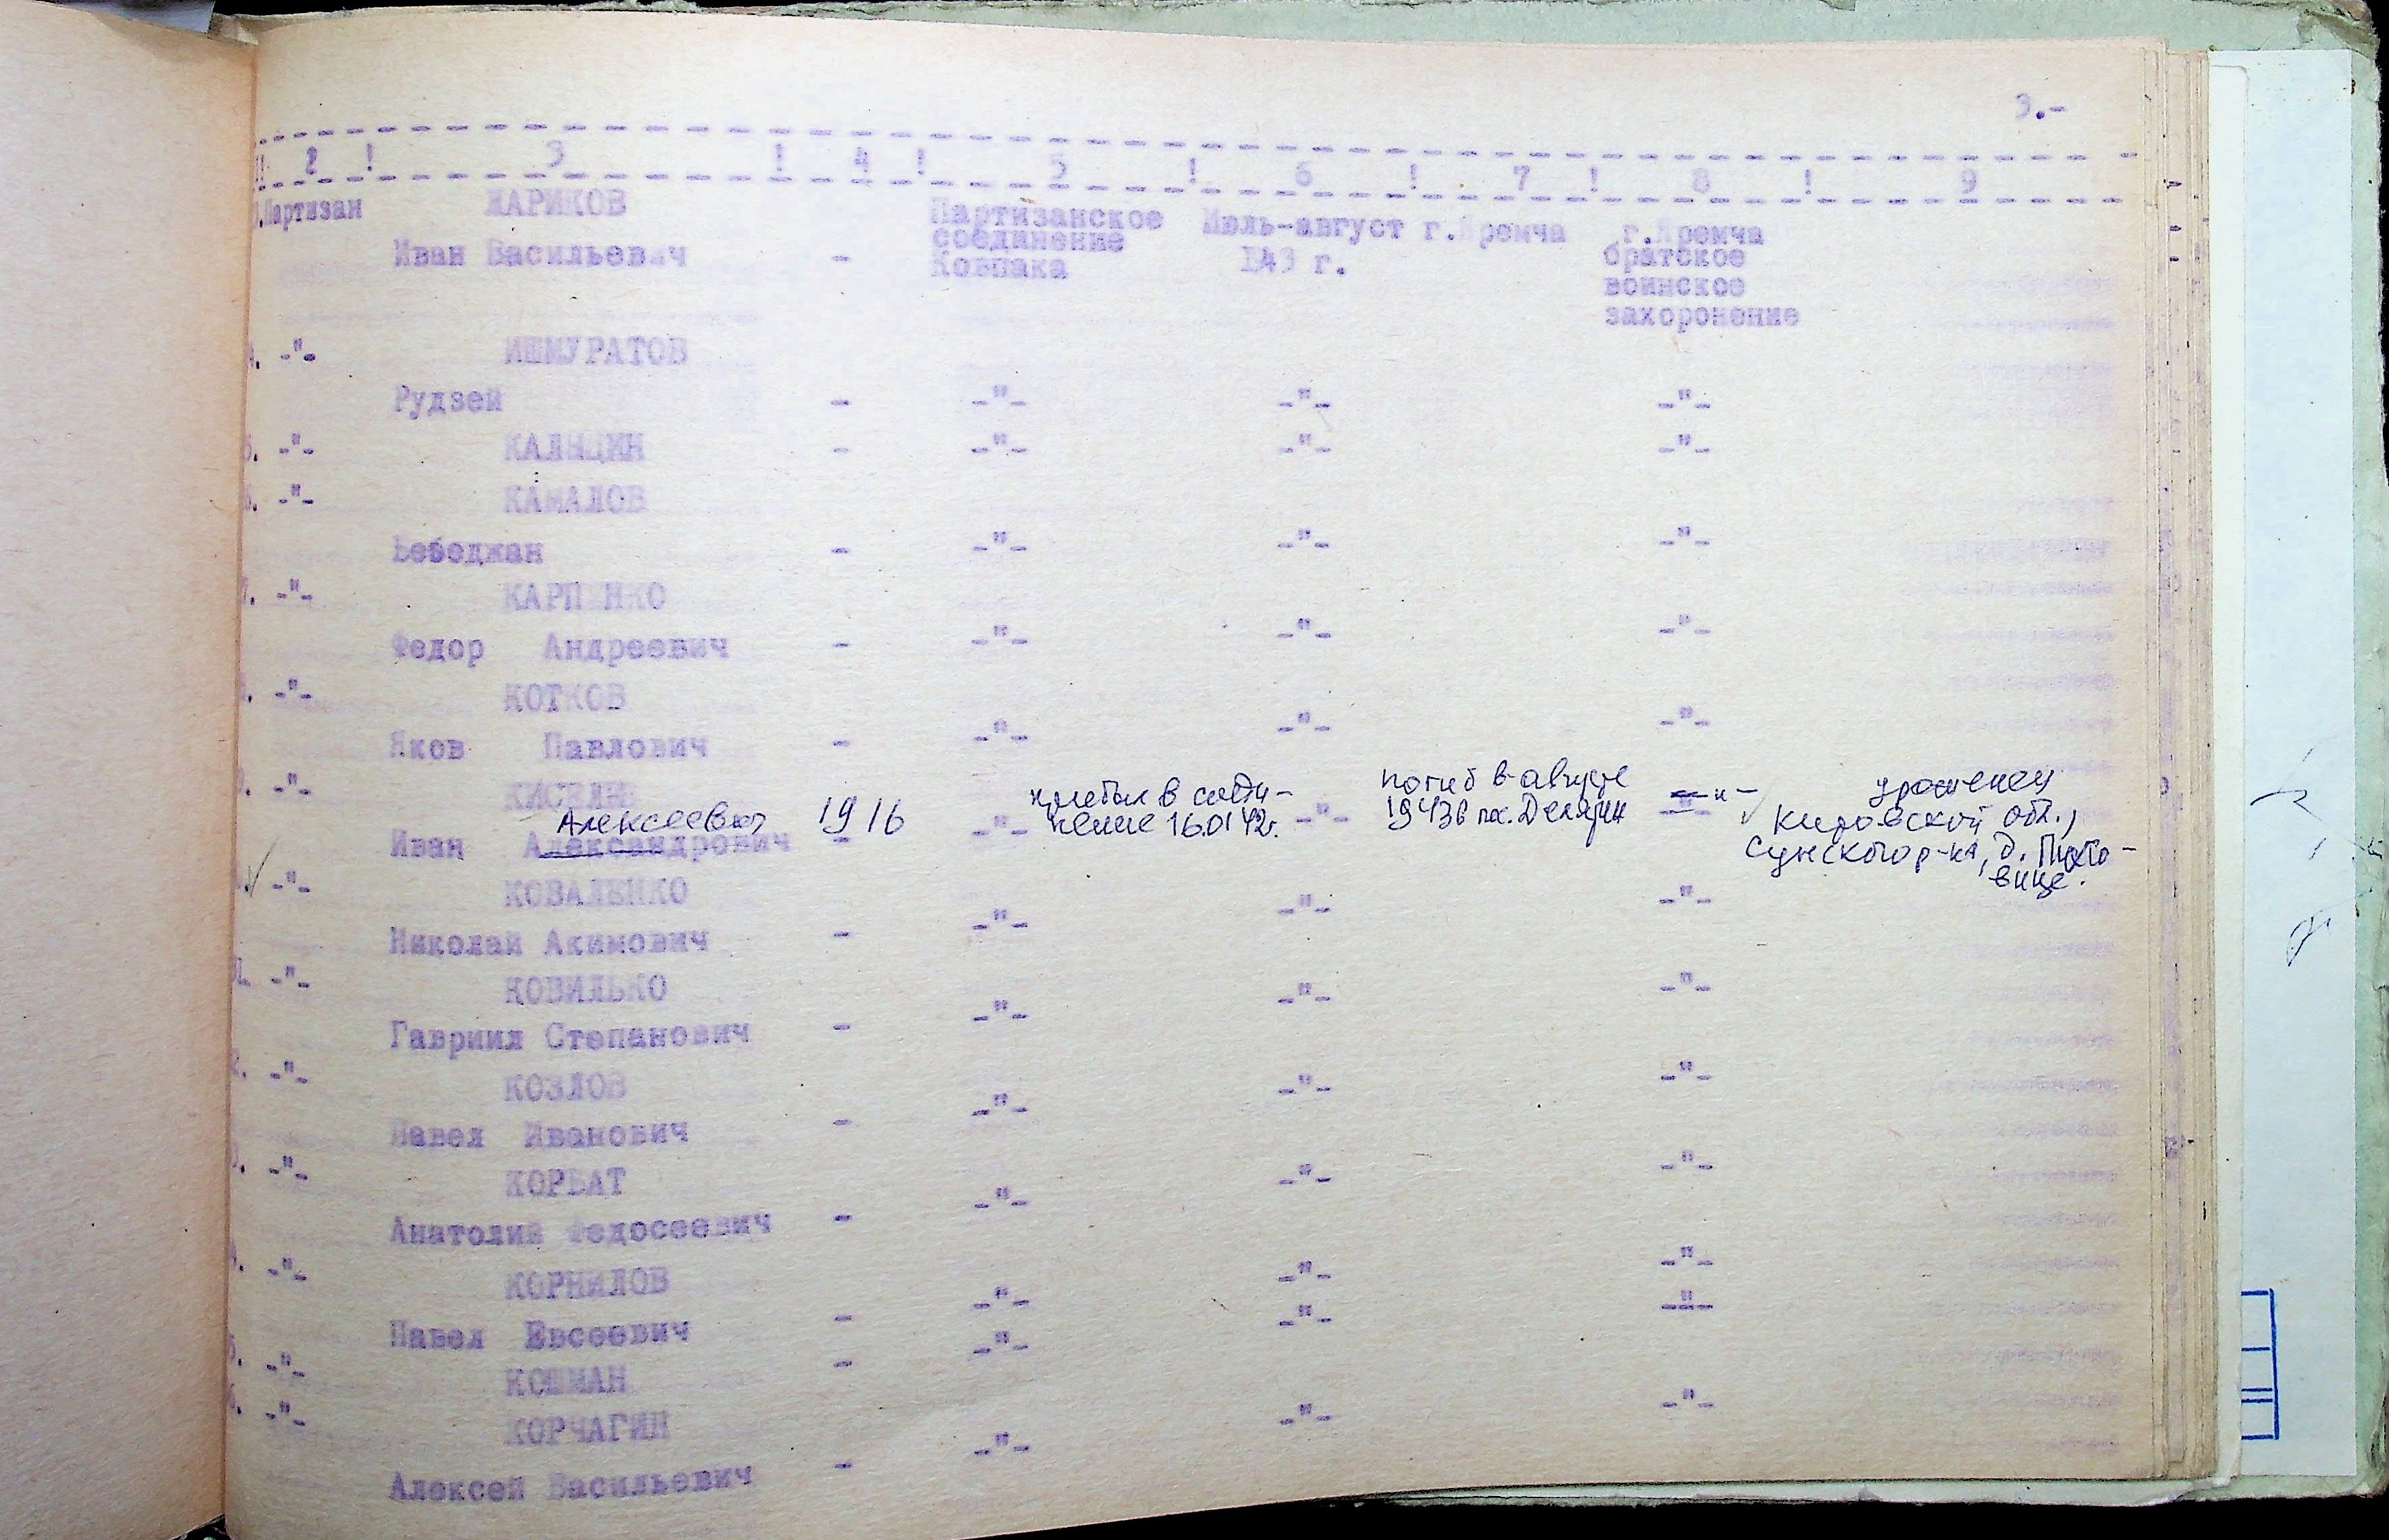 3.-
! 2 ! 3 ! 4 ! 5 ! 6 ! 7 ! 8 ! 9
Партизан ЖАРИКОВ
Иван Васильевич - Партизанское соединение Ковпака Июль-август 1943 г. г.Яремча г.Яремча братское воинское захоронение
4. -"- ИШМУРАТОВ
Рудзей - -"- -"- -"-
5. -"- КАЛЬЦИН - -"- -"- -"-
6. -"- КАМАЛОВ
Бебоджан - -"- -"- -"-
7. -"- КАРПЕНКО
Федор Андреевич - -"- -"- -"-
-"- КОТКОВ
Яков Павлович - -"- -"- -"-
-"- КИСЕЛЕВ
Алексеевич 1916 прибыл в соеди-нение 16.01 42г. погиб в августе 1943г в п. Делятин -"- уроженец
Кировской обл.,
Сунского р-на, д. Пихто-
вице.
Иван Александрович - -"- -"- -"-
-"- КОВАЛЕНКО
Николай Акимович - -"- -"- -"-
-"- КОВИЛЬКО
Гавриил Степанович - -"- -"- -"-
2. -"- КОЗЛОВ
Павел Иванович - -"- -"- -"-
-"- КОРБАТ
Анатолий Федосеевич - -"- -"- -"-
4. -"- КОРНИЛОВ
Павел Евсеевич - -"- -"- -"-
5. -"- КОШМАН - -"- -"- -"-
6. -"- КОРЧАГИН
Алексей Васильевич - -"- -"- -"-